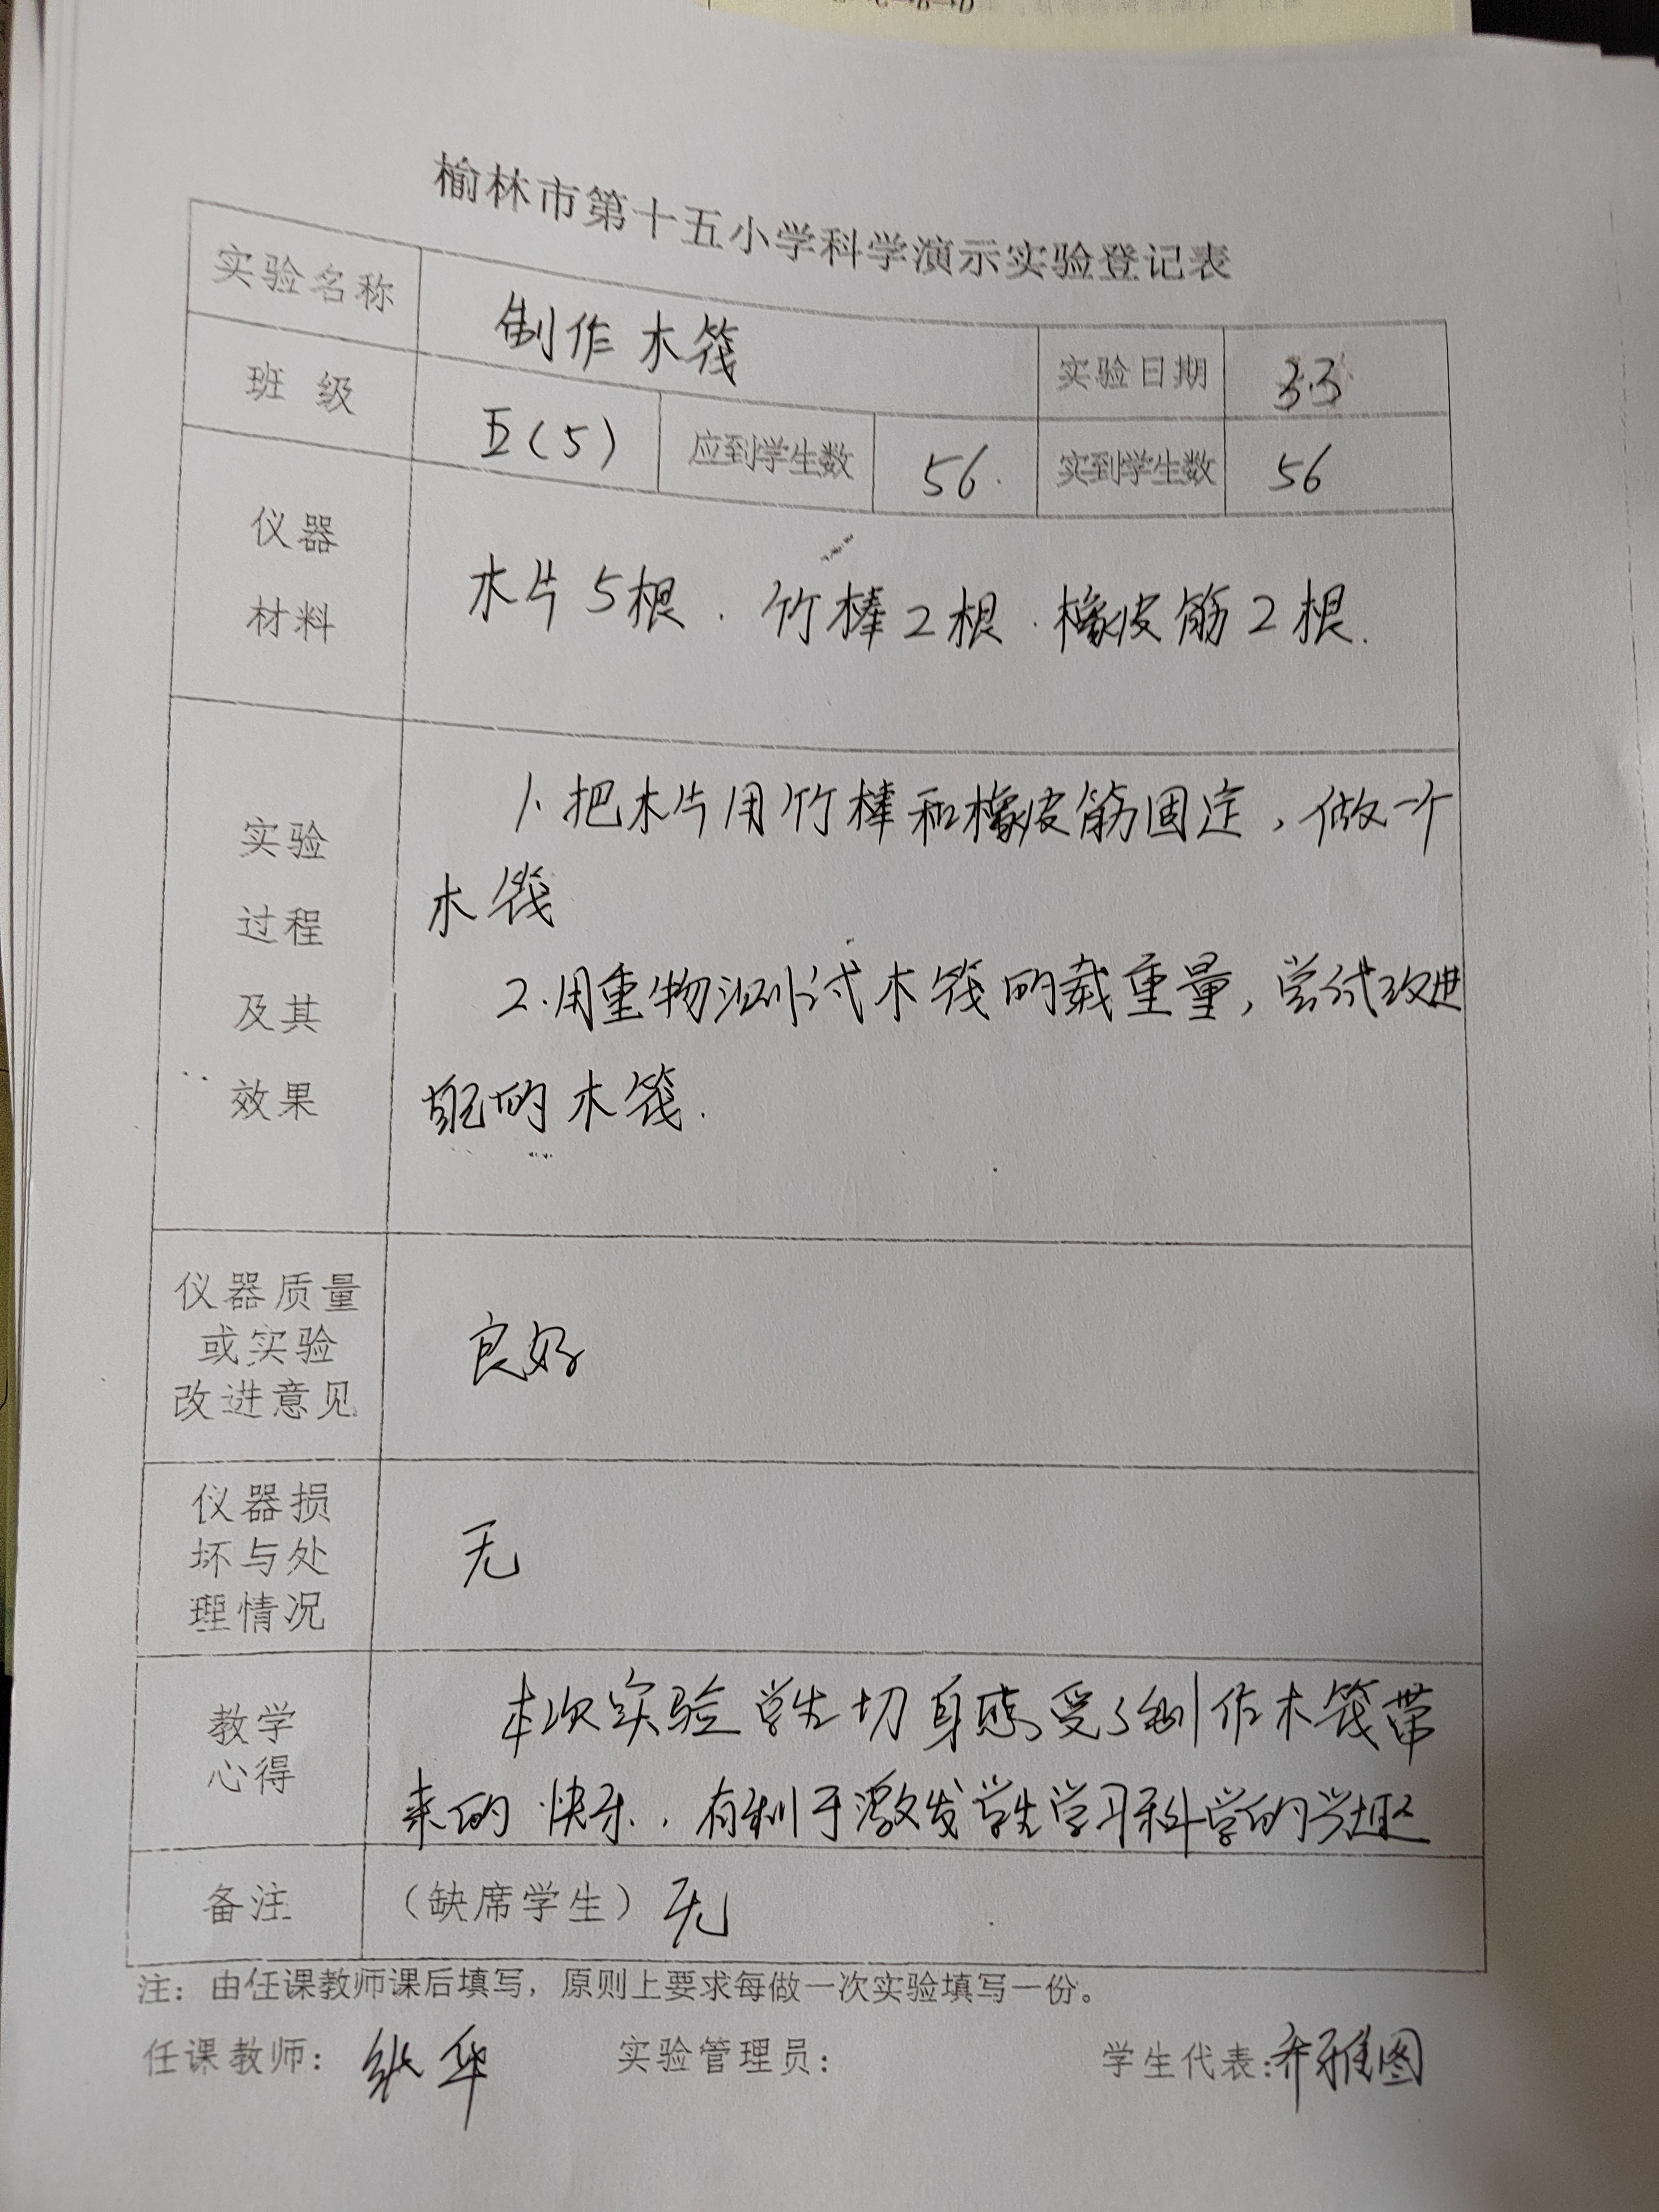 榆林市第十五小学科学演示实验登记表
实验名称 制作木筏 实验日期 3.3
班 级 五(5) 应到学生数 56. 实到学生数 56
仪器
材料
木片5根.竹棒2根.橡皮筋2根.
实验
过程
及其
效果
1.把木片用竹棒和橡皮筋固定,做一个
木筏
2.用重物测试木筏的载重量,尝试改进
自己的木筏.
仪器质量
或实验
改进意见
良好
仪器损
坏与处
理情况
无
教学
心得
本次实验学生切身感受了制作木筏带
来的快乐.有利于激发学生学习科学的兴趣
备注 (缺席学生) 无
注:由任课教师课后填写,原则上要求每做一次实验填写一份。
任课教师: 张华 实验管理员: 学生代表:乔雅图